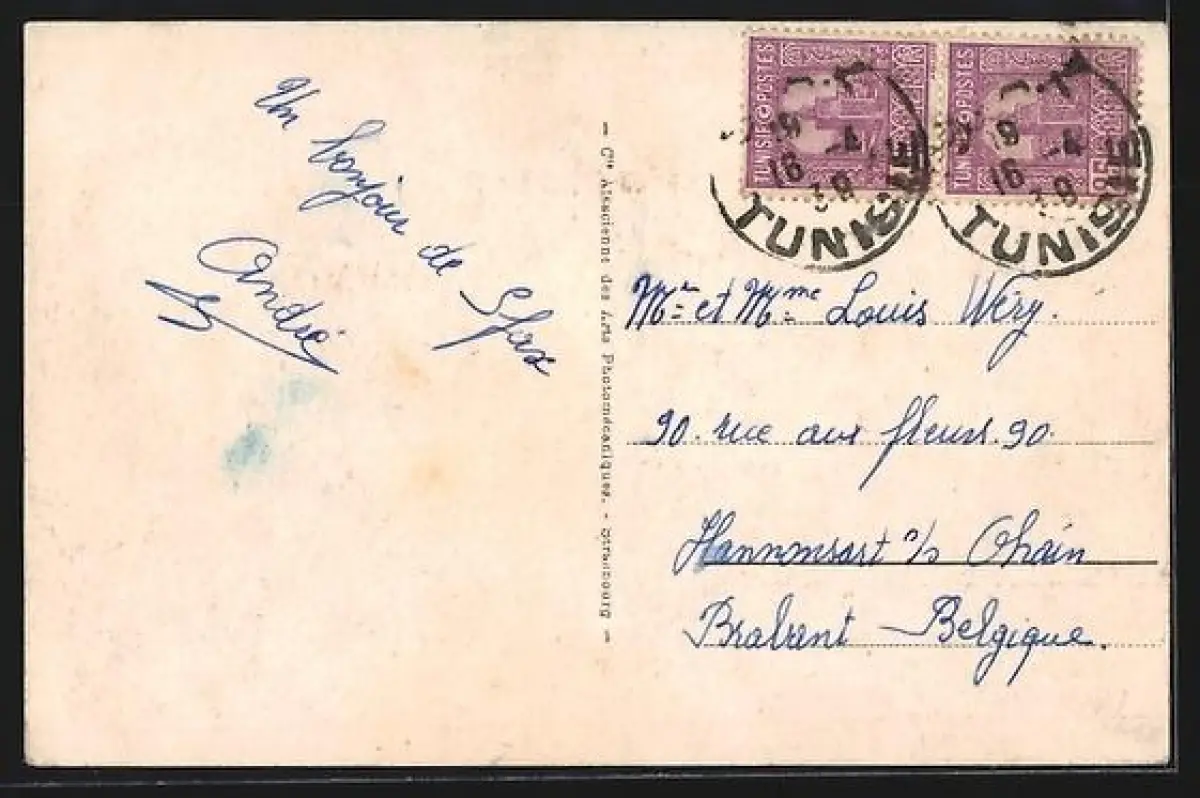 Un bonjour de Sfax
André
— Cie Alsacienne des Arts Photomécaniques. - Strasbourg —
TUNISIE POSTES
TUNISIE POSTES
16 -4
39
TUNISIE
16 -4
39
TUNISIE
Mr et Mme Louis Wéry.
90. rue aux fleurs. 90.
Hannonsart s/s Ohain
Brabant - Belgique.